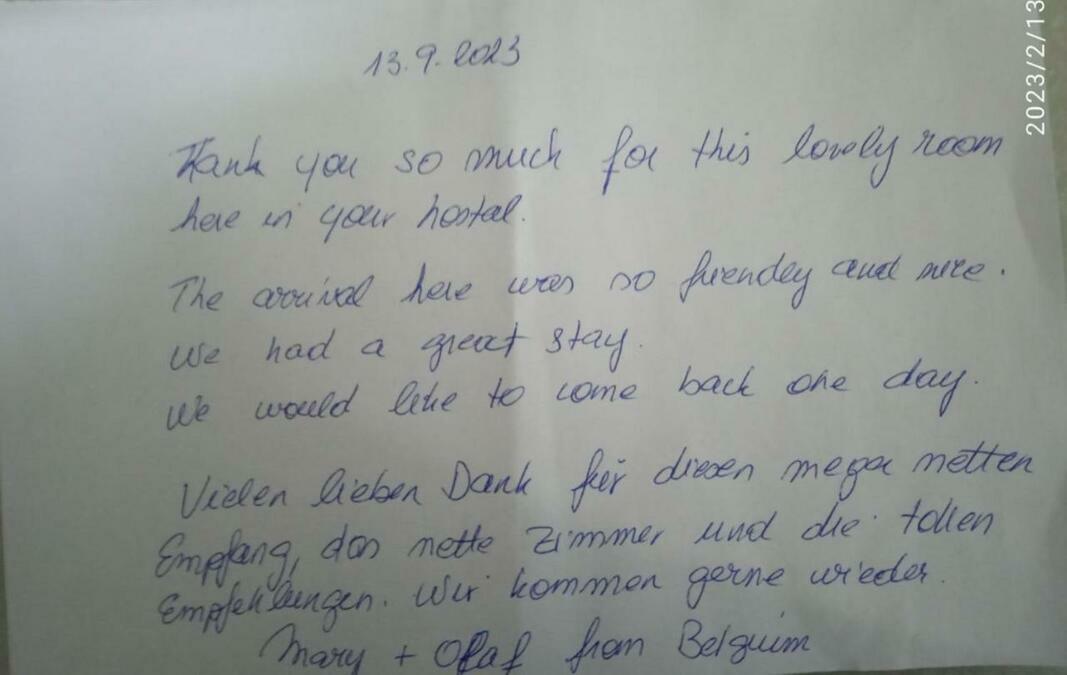 13.9.2023
Thank you so much for this lovely room
here in your hostal.
The arrival here was so friendey and nice.
We had a great stay.
We would like to come back one day.
Vielen lieben Dank für diesen mega netten
Empfang, das nette Zimmer und die tollen
Empfehlungen. Wir kommen gerne wieder.
Mary + Olaf from Belguim
2023/2/13